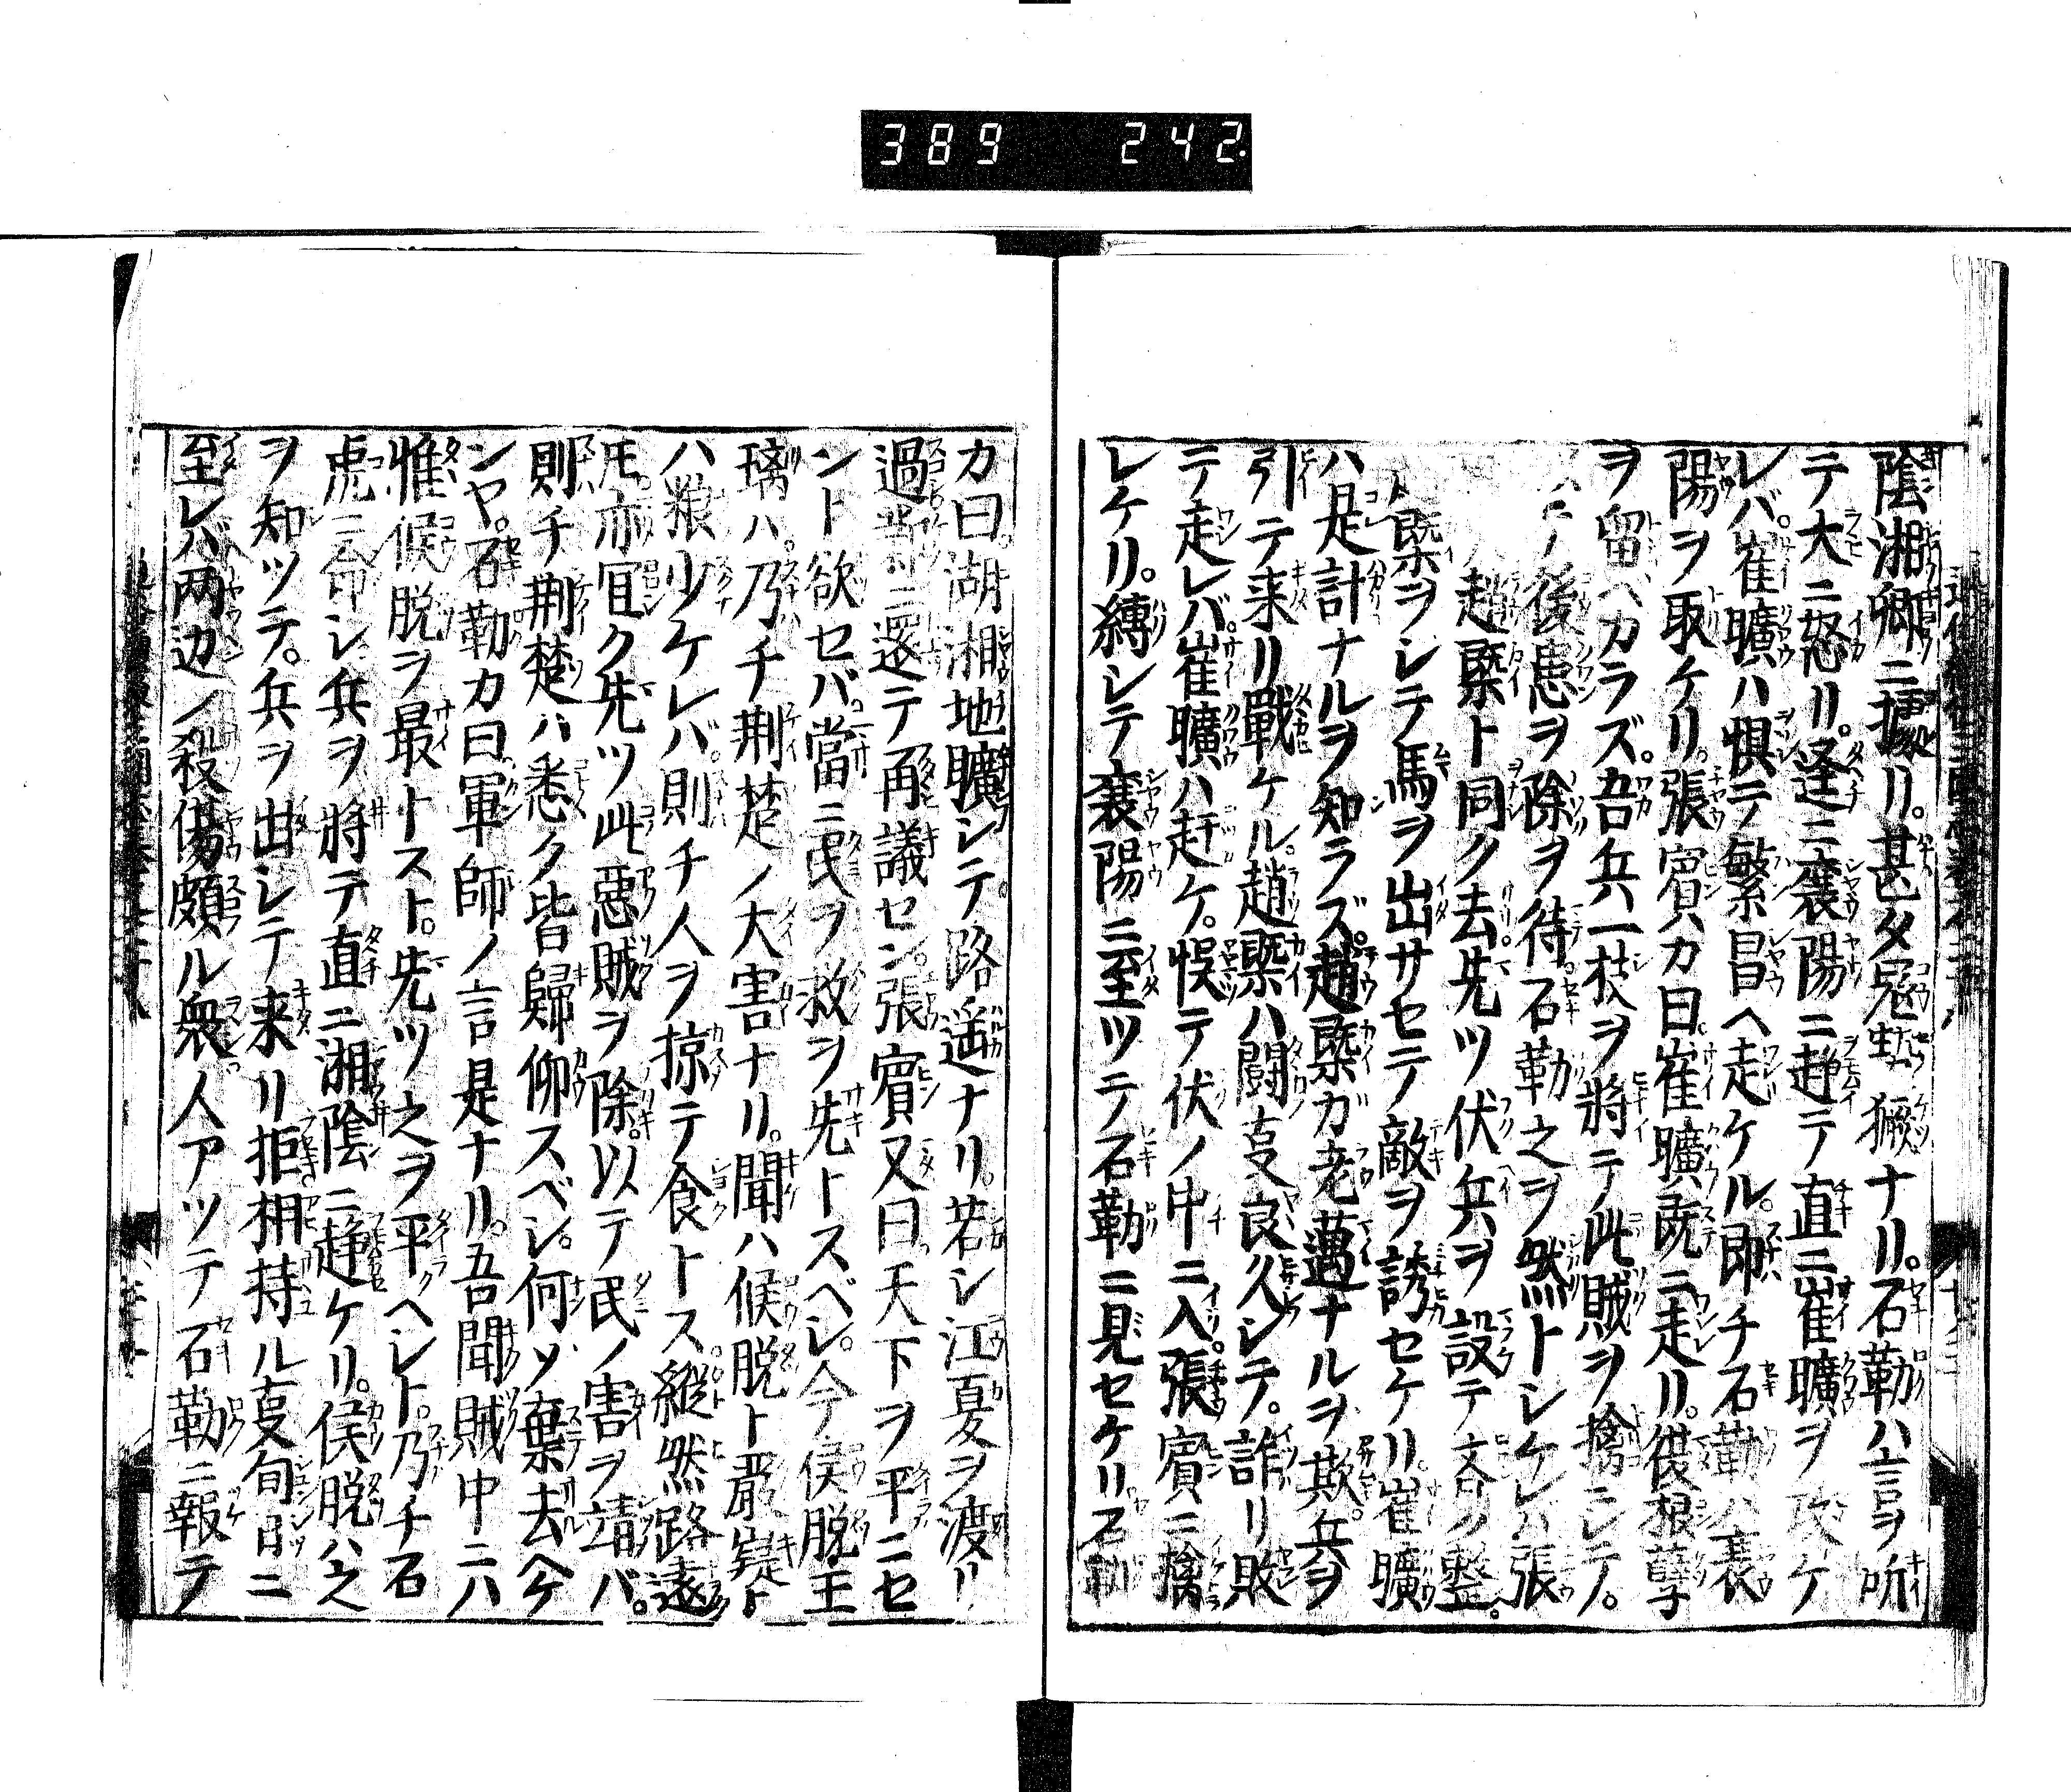 389 242
陰湘卿ニ據リ。甚タ冦蜇獗ナリ。石勒ハ言ヲ听
テ大ニ怒リ。逕ニ襄陽ニ趋テ直ニ崔曠ヲ攻ケ
レバ。崔曠ハ惧テ繁昌ヘ走ケル。即チ石勒ハ襄
陽ヲ取ケリ。張賓カ曰崔曠既ニ走リ。根孽
ヲ留ベカラズ。吾兵一枝ヲ將テ此賊ヲ擒ニシテ。
後患ヲ除ヲ待。石勒之ヲ然トシケレハ張
趙槩ト同ク去。先ツ伏兵ヲ設テ齊ク整。
ト槩ヲシテ馬ヲ出サセテ敵ヲ誘セケリ。崔曠
ハ是計ナルヲ知ラズ。趙槩ガ老邁ナルヲ欺。兵ヲ
引テ来リ戰ケル。趙槩ハ鬪夏良久シテ。詐リ敗
テ走レバ。崔曠ハ赶ケ。悞テ伏ノ中ニ入。張賓ニ擒
レケリ。縛シテ襄陽ニ至ツテ石勒ニ見セケリ石勒
カ曰。湖湘地曠シテ。路遥ナリ。若シ江夏ヲ渡リ
過ニ還テ再議セン。張賓又曰天下ヲ平ニセ
ント欲セバ。當ニ民ヲ救ヲ先トスベシ。今侯脱王
璃ハ。乃チ荆楚ノ大害ナリ。聞ハ候脱ト嚴嶷ト
ハ粮少ケレバ。則チ人ヲ掠テ食トス。縱然路遠
㪽亦冝ク先ツ此惡賊ヲ除。以テ民ノ害ヲ靖バ。
則チ荆楚ハ悉ク皆歸仰スベシ。何ゾ棄去ヘケ
ンヤ。石勒カ曰軍師ノ言是ナリ。吾聞賊中ニハ
惟候脱ヲ最トスト。先ツ之ヲ平ヘシト。乃チ石
虎ニ命シ兵ヲ將テ直ニ湘陰ニ趋ケリ。侯脱ハ之
ヲ知ツテ。兵ヲ出シテ来リ拒相持ル夏旬日ニ
至レバ两边ノ殺傷頗ル衆。人アツテ石勒ニ報テ